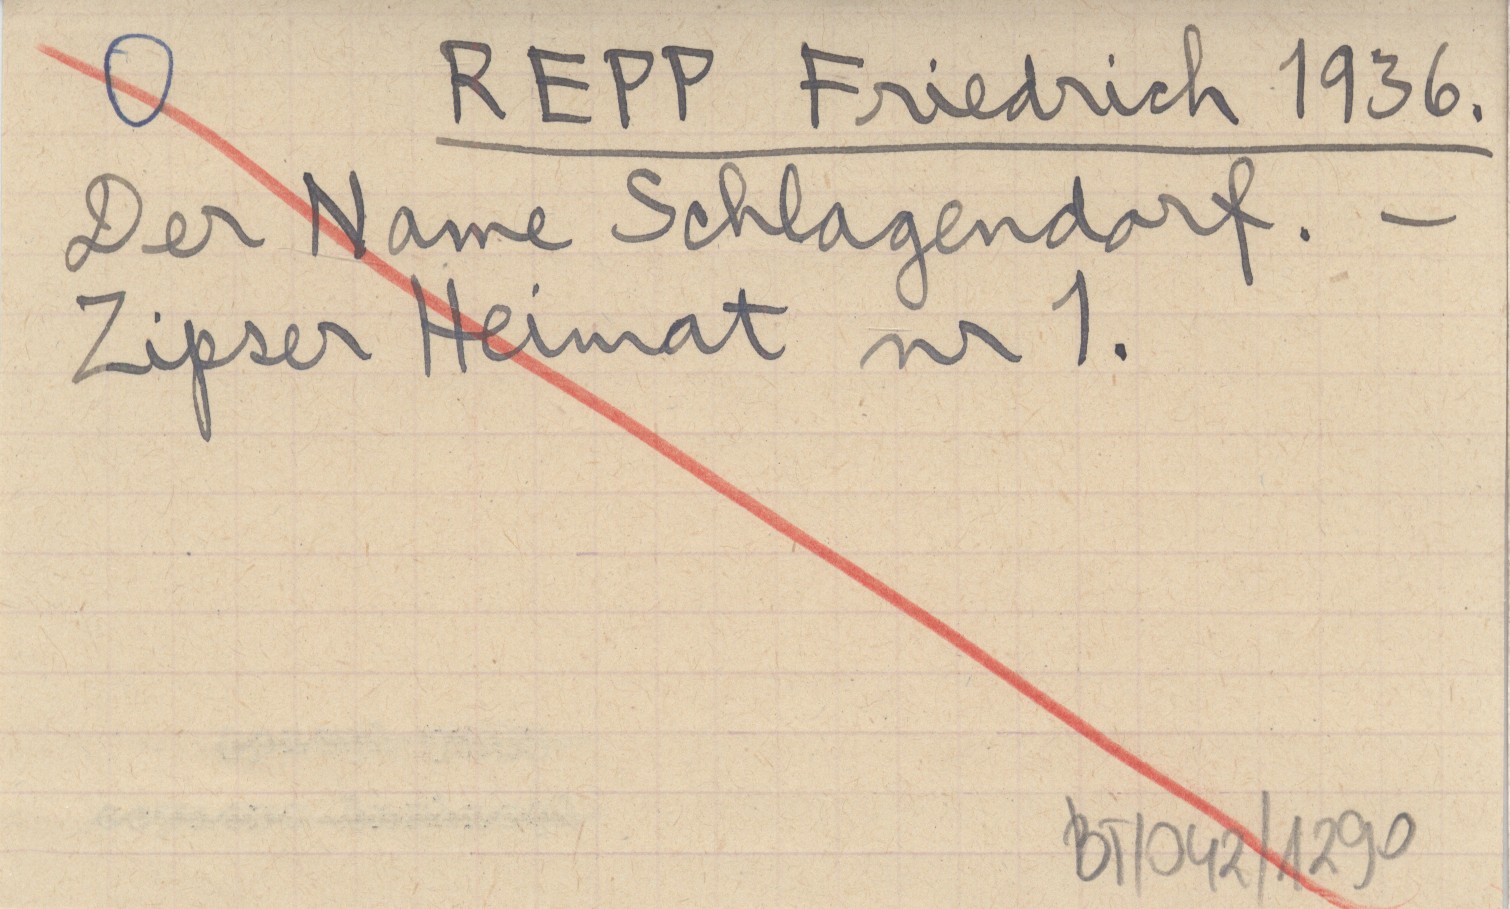 O REPP Friedrich 1936.
Der Name Schlagendorf. –
Zipser Heimat nr 1.
BT/042/1290